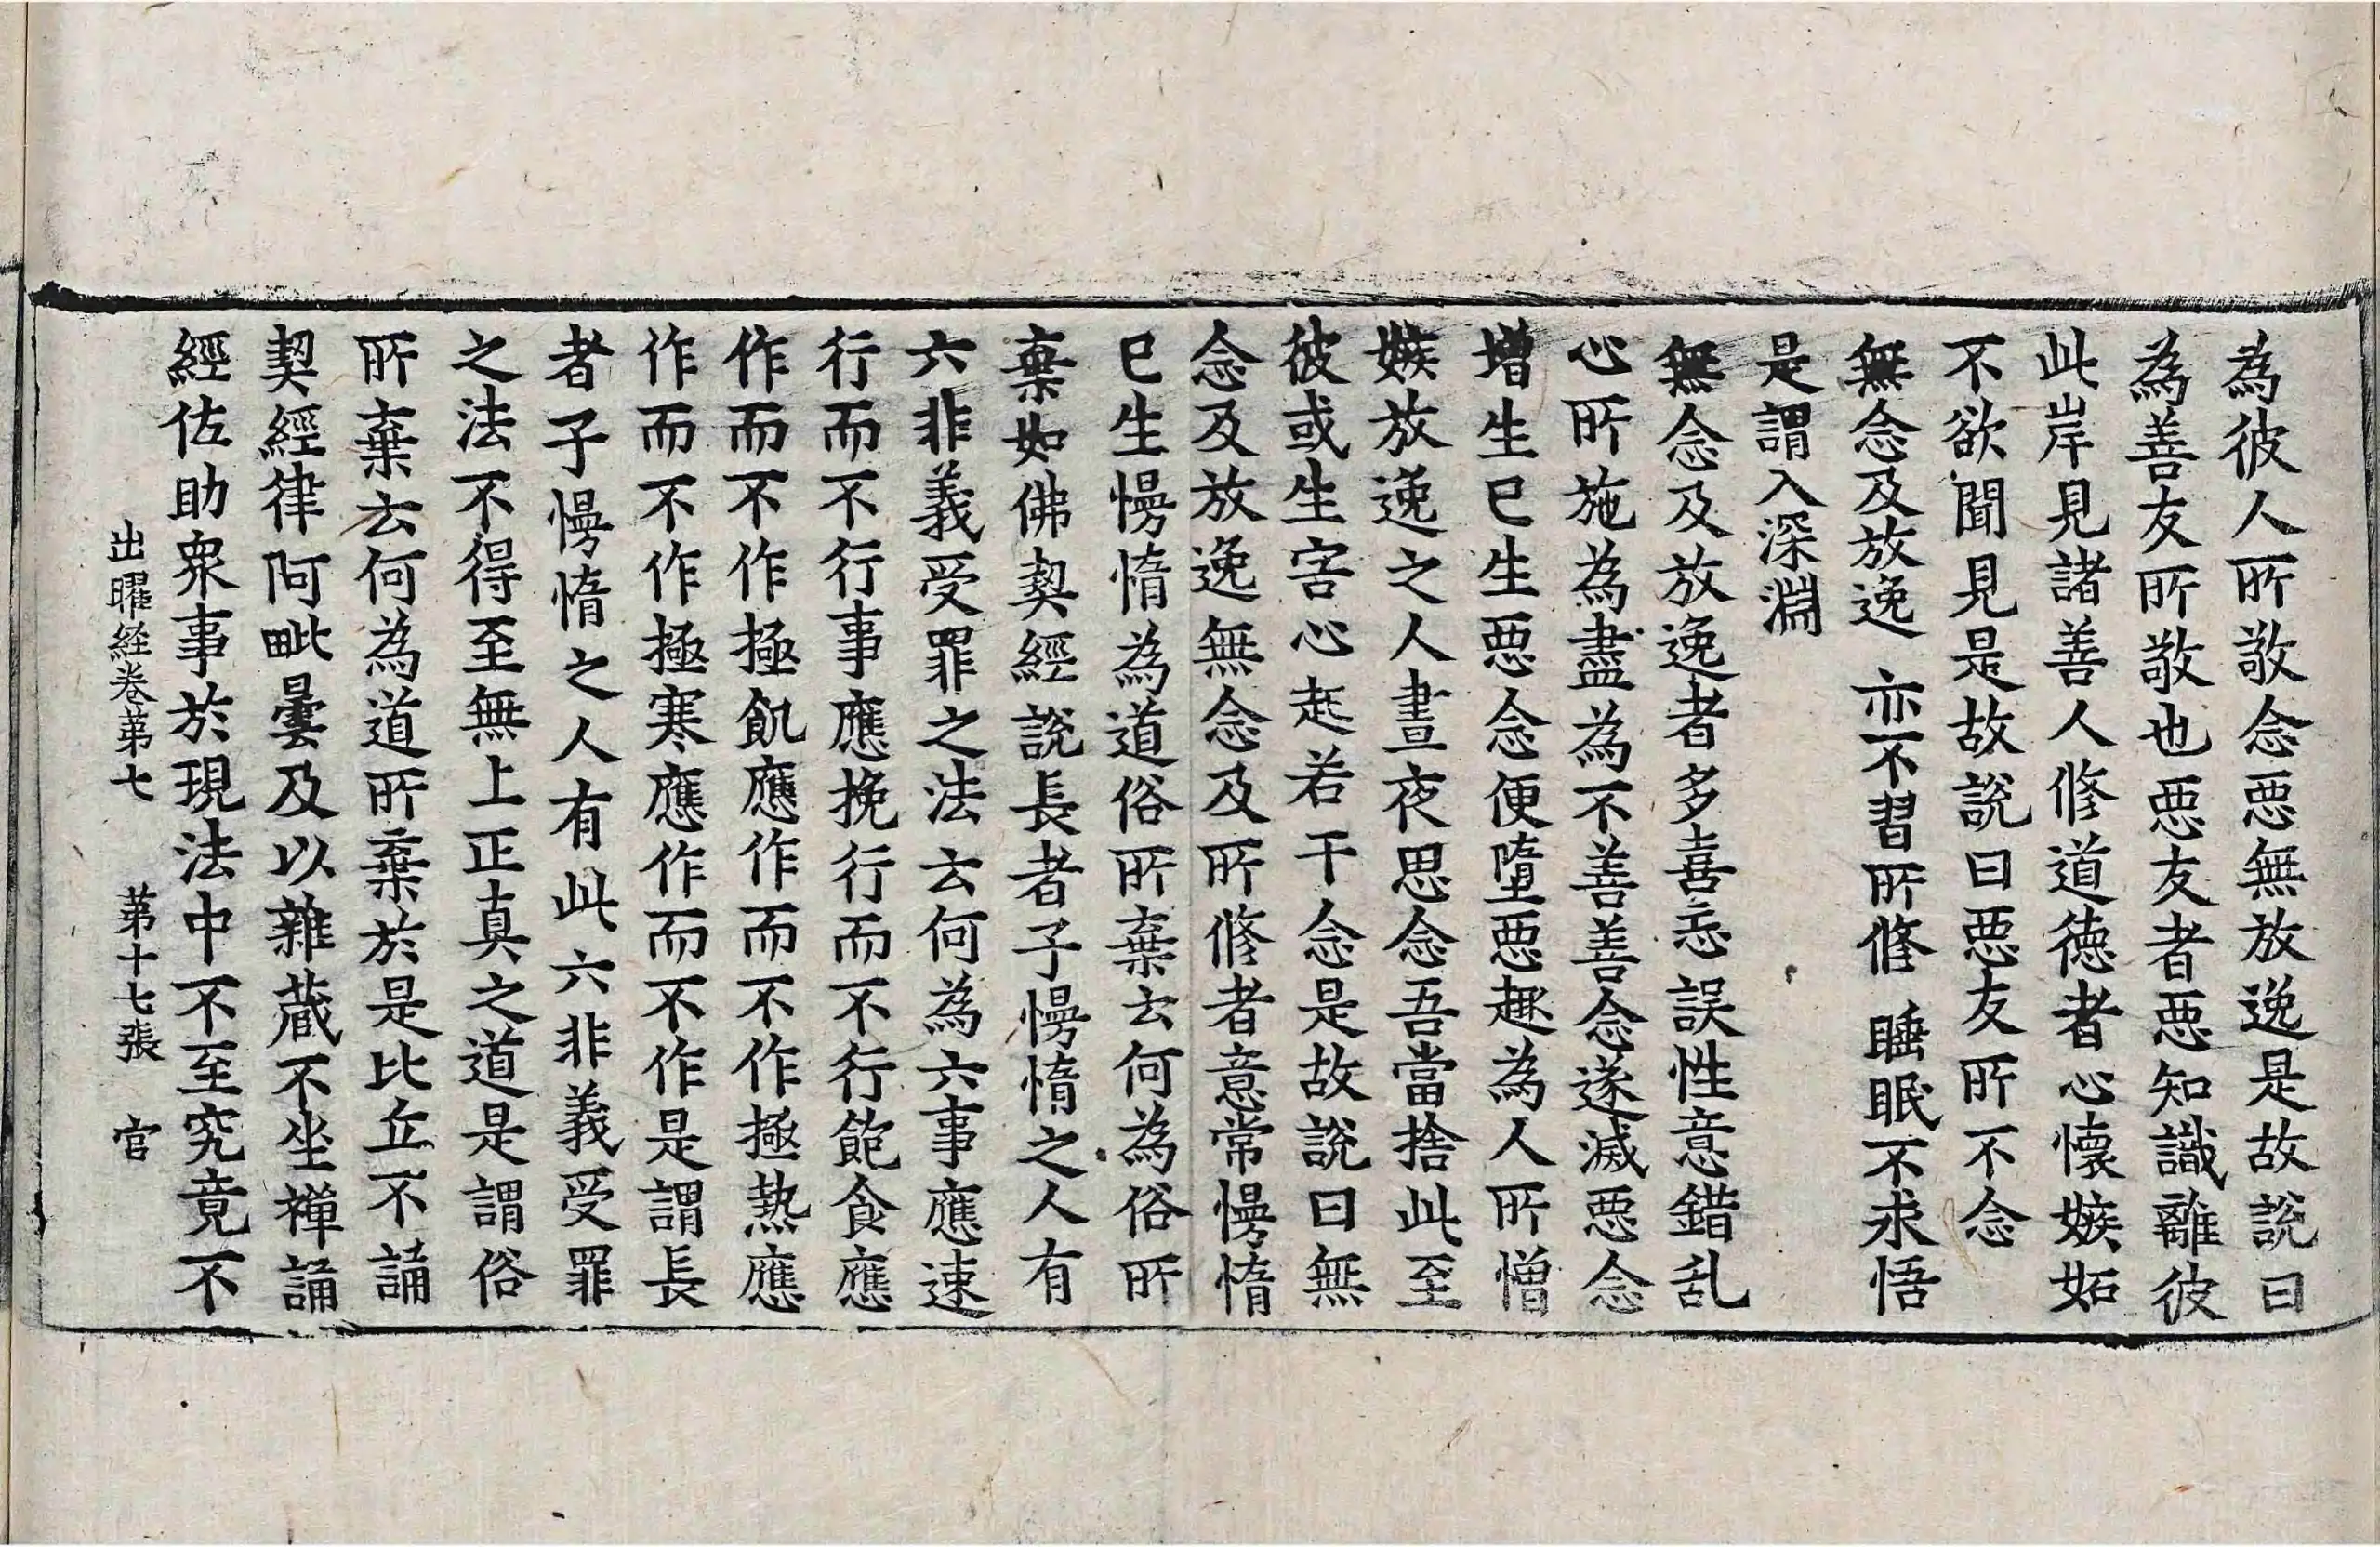 為彼人所敬念惡無放逸是故説曰
為善友所敬也惡友者惡知識離彼
此岸見諸善人修道徳者心懷嫉妬
不欲聞見是故説曰惡友所不念
無念及放逸 亦不習所修 睡眠不求悟
是謂入深淵
無念及放逸者多喜忘誤性意錯乱
心所施為盡為不善善念遂滅惡念
增生已生惡念便墮惡趣為人所憎
嫉放逸之人晝夜思念吾當捨此至
彼或生害心起若干念是故説曰無
念及放逸無念及所修者意常慢惰
已生慢惰為道俗所棄去何為俗所
棄如佛契經説長者子慢惰之人有
六非義受罪之法云何為六事應速
行而不行事應挽行而不行飽食應
作而不作極飢應作而不作極熱應
作而不作極寒應作而不作是謂長
者子慢惰之人有此六非義受罪
之法不得至無上正真之道是謂俗
所棄云何為道所棄於是比丘不誦
契經律阿毗曇及以雜蔵不坐禪誦
經佐助衆事於現法中不至究竟不
出曜経卷苐七 苐十七張 官